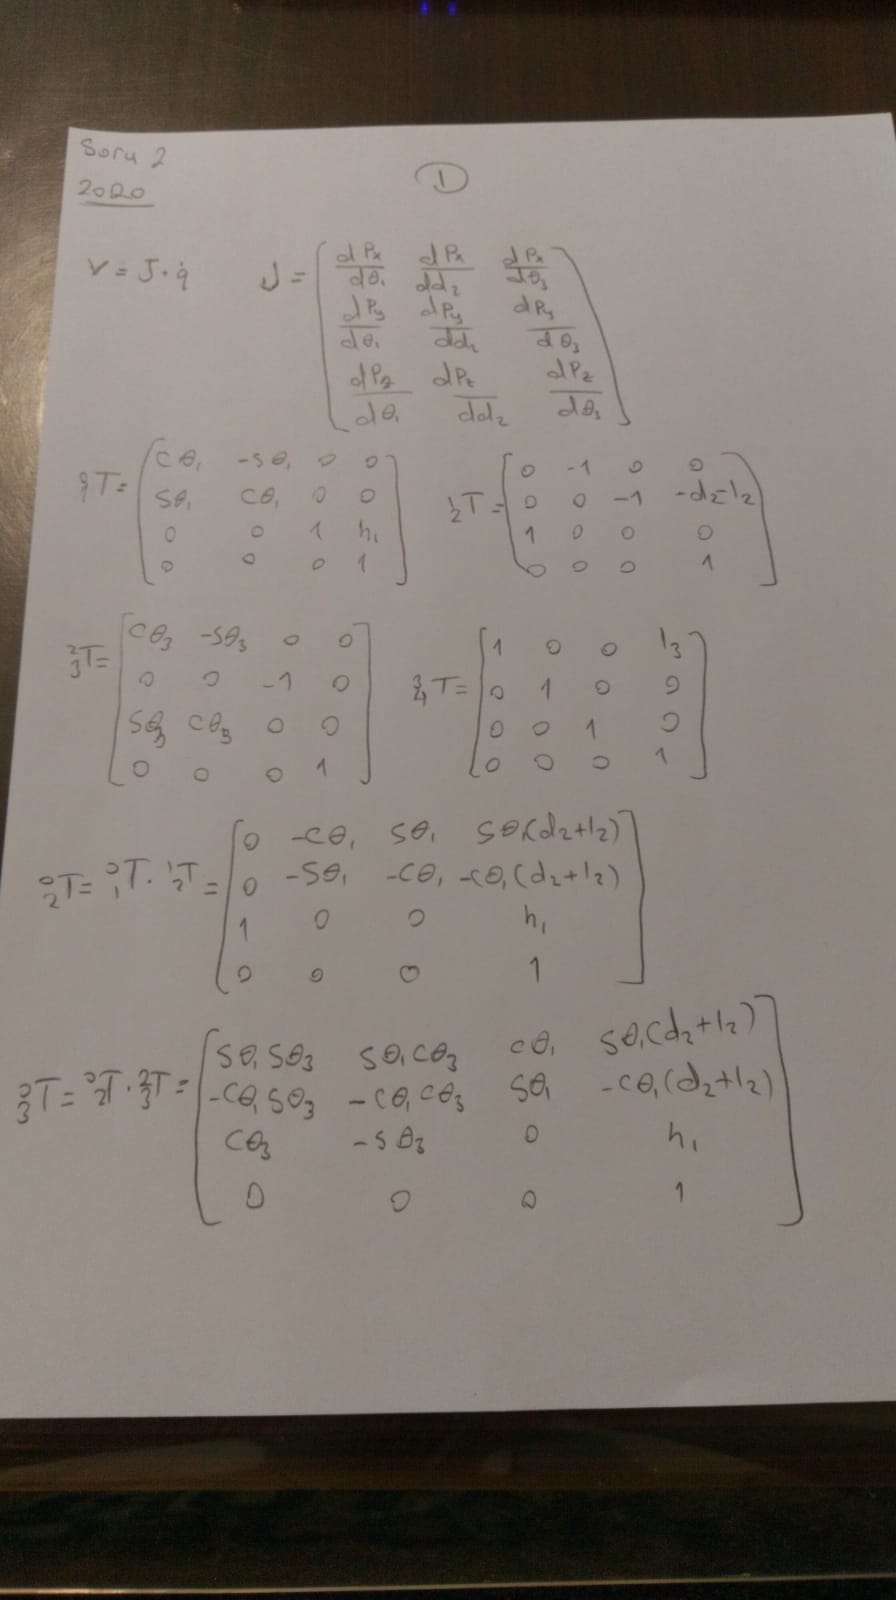 Soru 2
2020
1
V = J · q̇ J = [ dPx/dθ₁ dPx/dd₂ dPx/dθ₃
dPy/dθ₁ dPy/dd₂ dPy/dθ₃
dPz/dθ₁ dPz/dd₂ dPz/dθ₃ ]
⁰₁T = [ cθ₁ -sθ₁ 0 0
sθ₁ cθ₁ 0 0
0 0 1 h₁
0 0 0 1 ]
¹₂T = [ 0 -1 0 0
0 0 -1 -d₂-l₂
1 0 0 0
0 0 0 1 ]
²₃T = [ cθ₃ -sθ₃ 0 0
0 0 -1 0
sθ₃ cθ₃ 0 0
0 0 0 1 ]
³₄T = [ 1 0 0 l₃
0 1 0 0
0 0 1 0
0 0 0 1 ]
⁰₂T = ⁰₁T · ¹₂T = [ 0 -cθ₁ sθ₁ sθ₁(d₂+l₂)
0 -sθ₁ -cθ₁ -cθ₁(d₂+l₂)
1 0 0 h₁
0 0 0 1 ]
⁰₃T = ⁰₂T · ²₃T = [ sθ₁sθ₃ sθ₁cθ₃ cθ₁ sθ₁(d₂+l₂)
-cθ₁sθ₃ -cθ₁cθ₃ sθ₁ -cθ₁(d₂+l₂)
cθ₃ -sθ₃ 0 h₁
0 0 0 1 ]